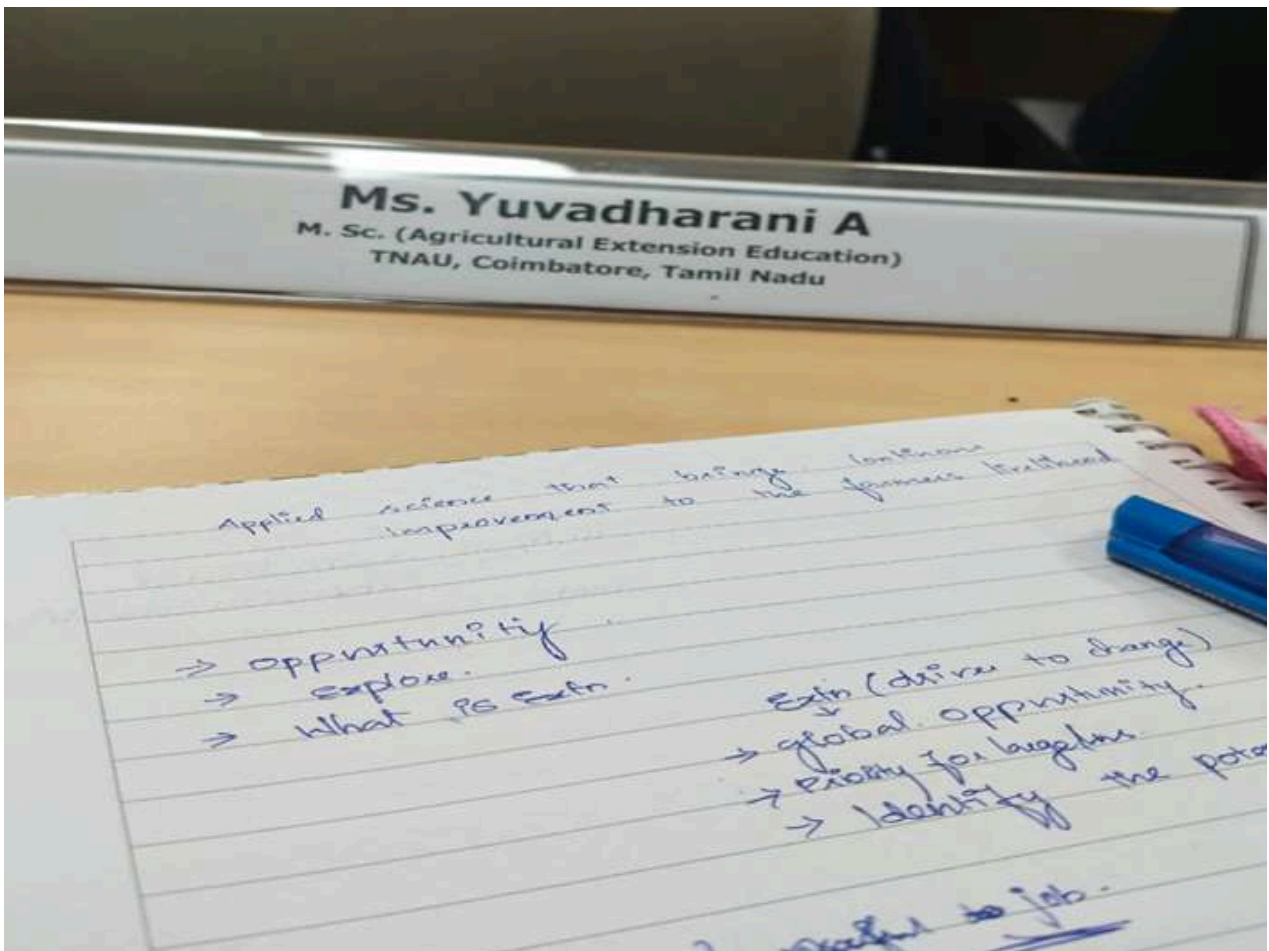 Ms. Yuvadharani A
M. Sc. (Agricultural Extension Education)
TNAU, Coimbatore, Tamil Nadu
Applied science that brings
improvement to the farmers livelihood
→ opportunity
→ explore.
→ What is Extn.
Extn (drive to change)
→ global opportunity.
→ Priority for
→ Identify the
to job.